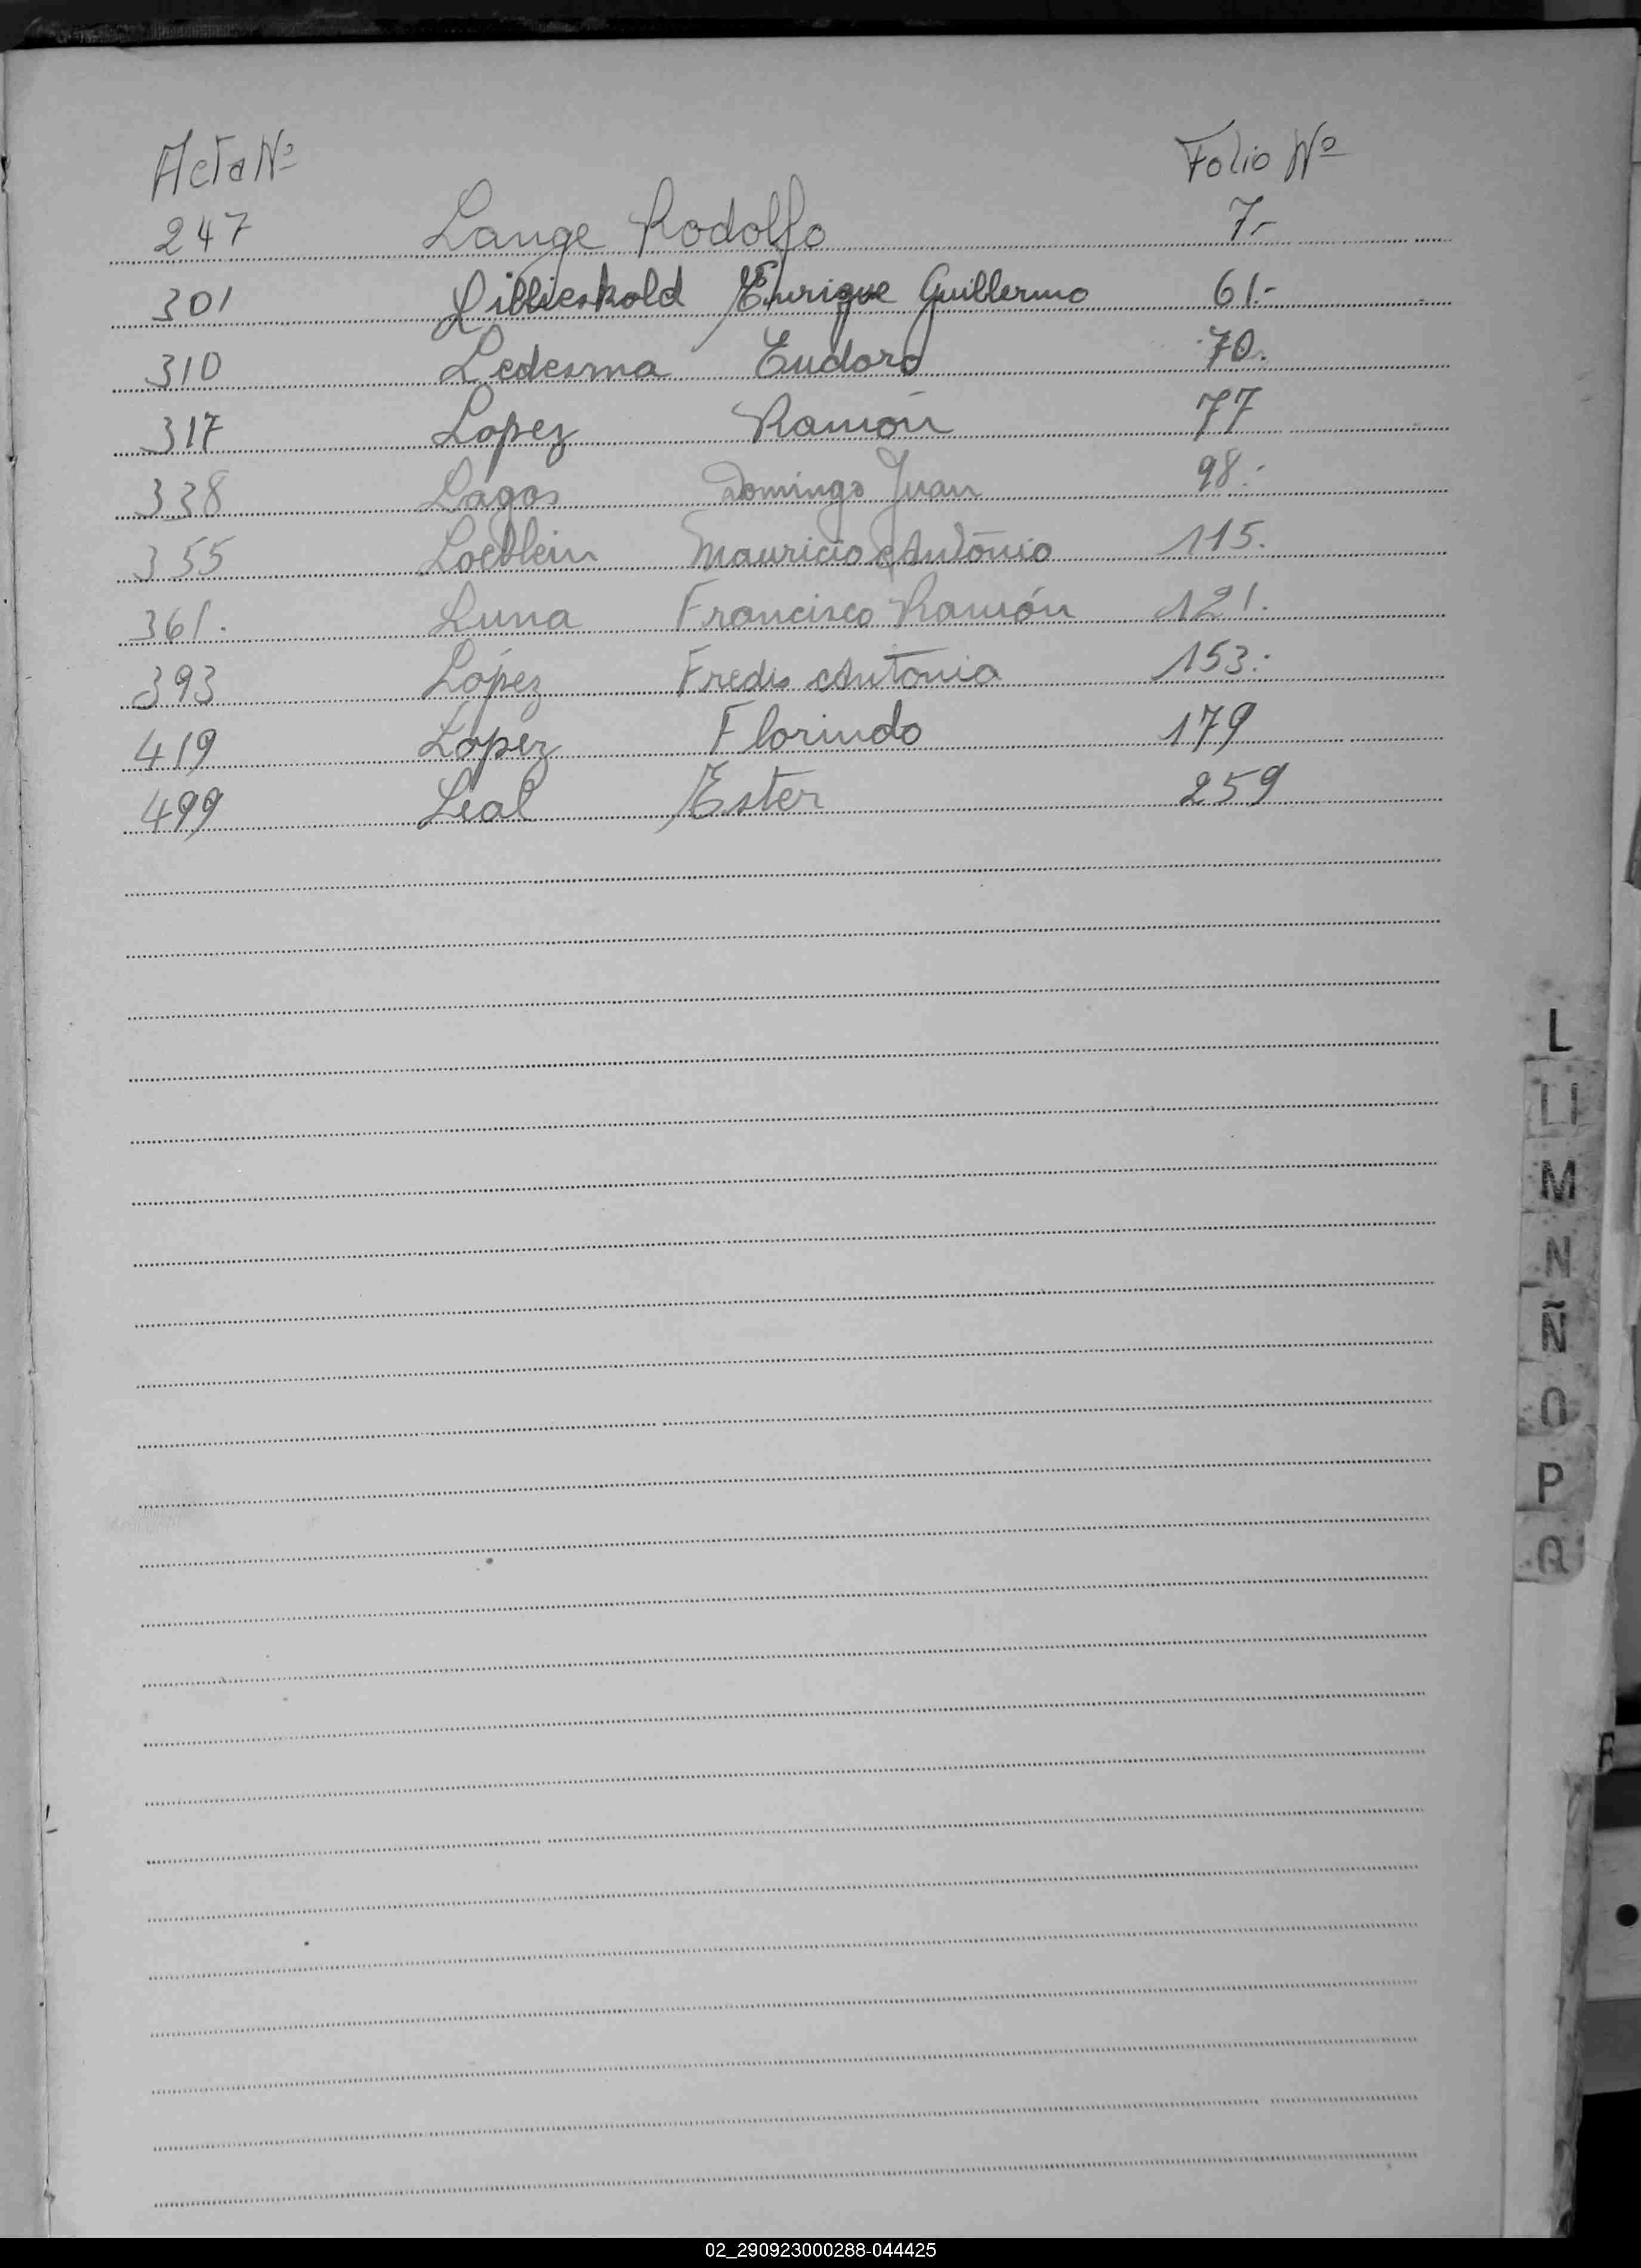 Acta Nº Folio Nº
247 Lange Rodolfo 7-
301 Lillieskold Enrique Guillermo 61.-
310 Ledesma Eudoro 70.
317 Lopez Ramón 77
338 Lagos Domingo Juan 98.-
355 Mauricio Antonio 115.
361. Luna Francisco Ramón 121.
393 López Fredis Antonio 153.-
419 Lopez Florindo 179
499 Leal Ester 259
L
Ll
M
N
Ñ
O
P
Q
R
02_290923000288-044425